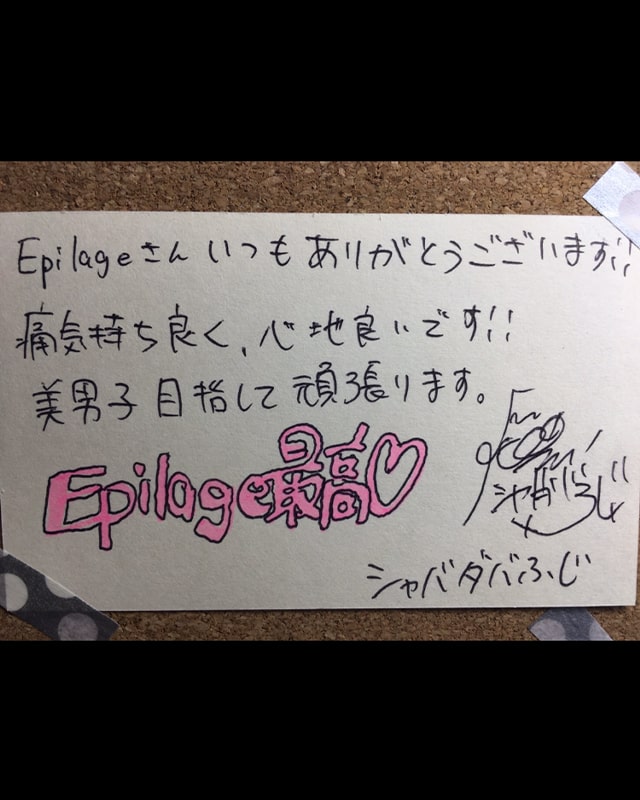 Epilageさん いつも ありがとうございます!!
痛気持ち良く、心地良いです!!
美男子 目指して 頑張ります。
Epilage最高♡
シャバダバふじ